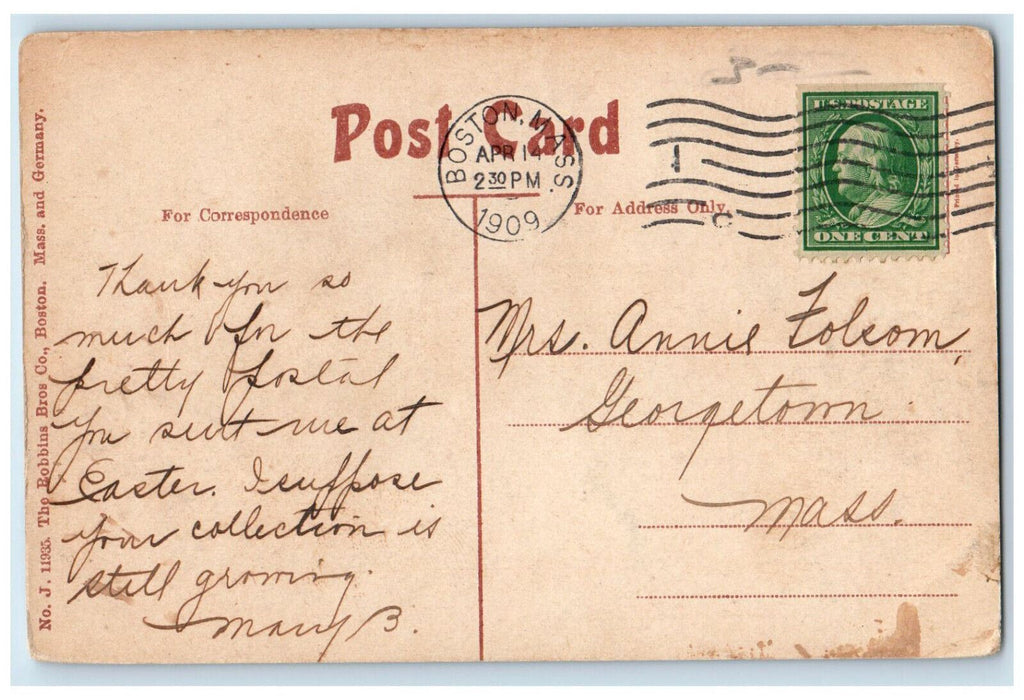 Post Card
BOSTON, MASS.
APR 14
2 30 PM
1909
1
C
U.S. POSTAGE
ONE CENT
Printed in Germany.
For Correspondence
For Address Only.
No. J. 11935. The Robbins Bros Co., Boston. Mass. and Germany.
Thank you so
much for the
pretty postal
you sent me at
Easter. I suppose
your collection is
still growing.
Mary B.
Mrs. Annie Folsom,
Georgetown
Mass.